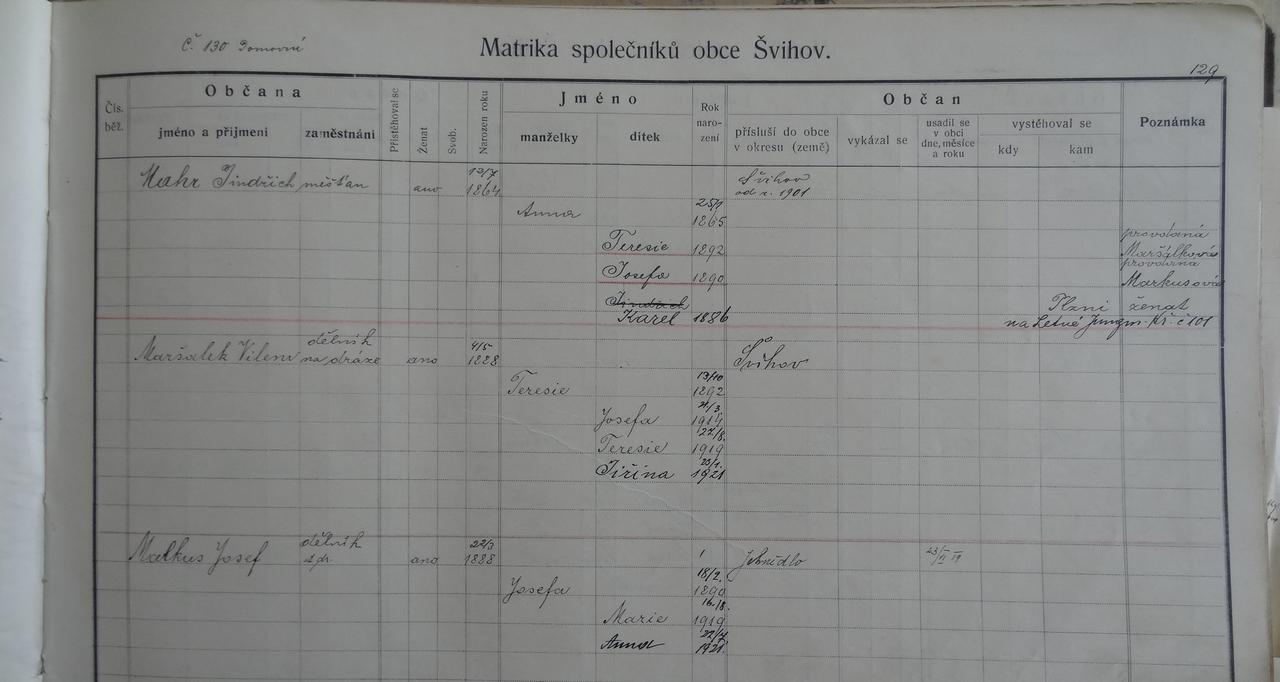 Č. 130 Domovní
Matrika společníků obce Švihov.
129
Čís. běž.
Občana
jméno a přijmení
zaměstnání
Přistěhoval se
Ženat
Svob.
Narozen roku
Jméno
manželky
dítek
Rok naro- zení
Občan
přísluší do obce v okresu (země)
vykázal se
usadil se v obci dne, měsíce a roku
vystěhoval se
kdy
kam
Poznámka
Mahr Jindřich měšťan ano 12/7 1864 Švihov od r. 1901
Anna 25/1 1865
Teresie 1892 provdaná Maršálková
Josefa 1890 provdaná Markusová
Jindřich
Karel 1886 Plzni ženat
na Letné Jungm. tř. č 101
Maršalek Vilem dělník na dráze ano 4/5 1888 Švihov
Teresie 13/10 1892
Josefa 21/3 1914
Teresie 27/8. 1919
Jiřina 23/1. 1921
Markus Josef dělník ano 22/3 1888
Josefa 18/2. 1890
Marie 16./8. 1919
Anna 22/7. 1921